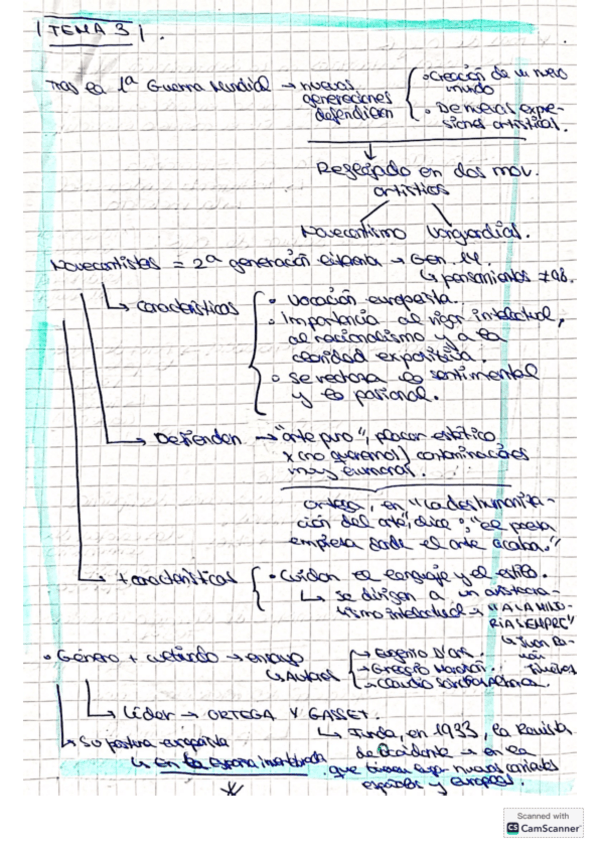 TEMA 3
Tras la 1ª Guerra Mundial → nuevas generaciones defendían
• Creación de un nuevo mundo
• De nuevas expresiones artísticas.
Reflejado en dos mov. artísticos
Novecentismo Vanguardias.
Novecentistas = 2ª generación → Gen. 14.
↳ pensamientos ≠ 98.
↳ Características
• Vocación europeísta.
• Importancia al rigor intelectual,
al racionalismo y a la
claridad expositiva.
• Se rechaza lo sentimental
y lo pasional.
↳ Defienden → "arte puro", placer estético
x (no queremos) contaminaciones
muy humanas.
Ortega, en "La deshumaniza-
ción del arte", dice: "el poeta
empieza donde el arte acaba."
↳ + características
• Cuidan el lenguaje y el estilo.
↳ se dirigen a un aristocra-
tismo intelectual → "A LA MINO-
RÍA SIEMPRE"
↳ Juan Ra-
món
Jiménez
• Género + cultivado → ensayo
↳ Autores
→ Eugenio D'Ors.
→ Gregorio Marañón.
→ Claudio Sánchez Albornoz.
↳ Líder → ORTEGA Y GASSET.
↳ Funda, en 1933, la Revista
de Occidente → en la
que
↳ Su postura europeísta
↳ En la España invertebrada
nuevas
españoles y europeos.
Scanned with
CS CamScanner